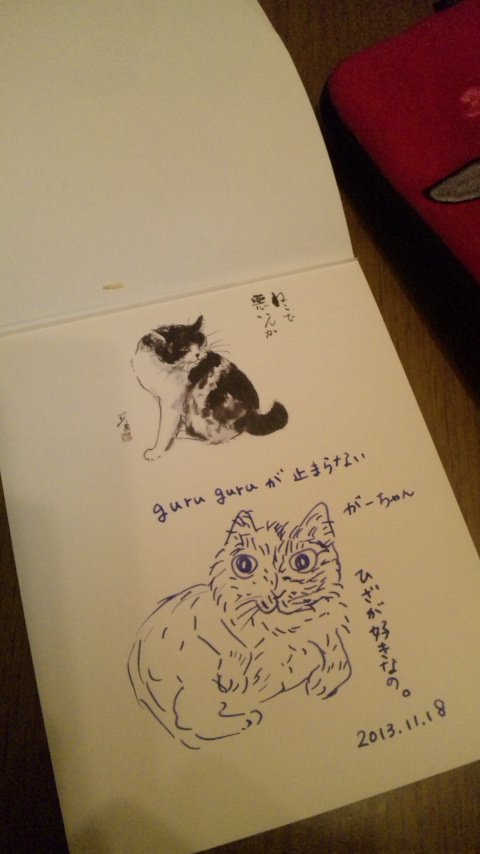 ねこで
悪いんか
guru guru が 止まらない
がーちゃん
ひざが好きなの。
2013.11.18